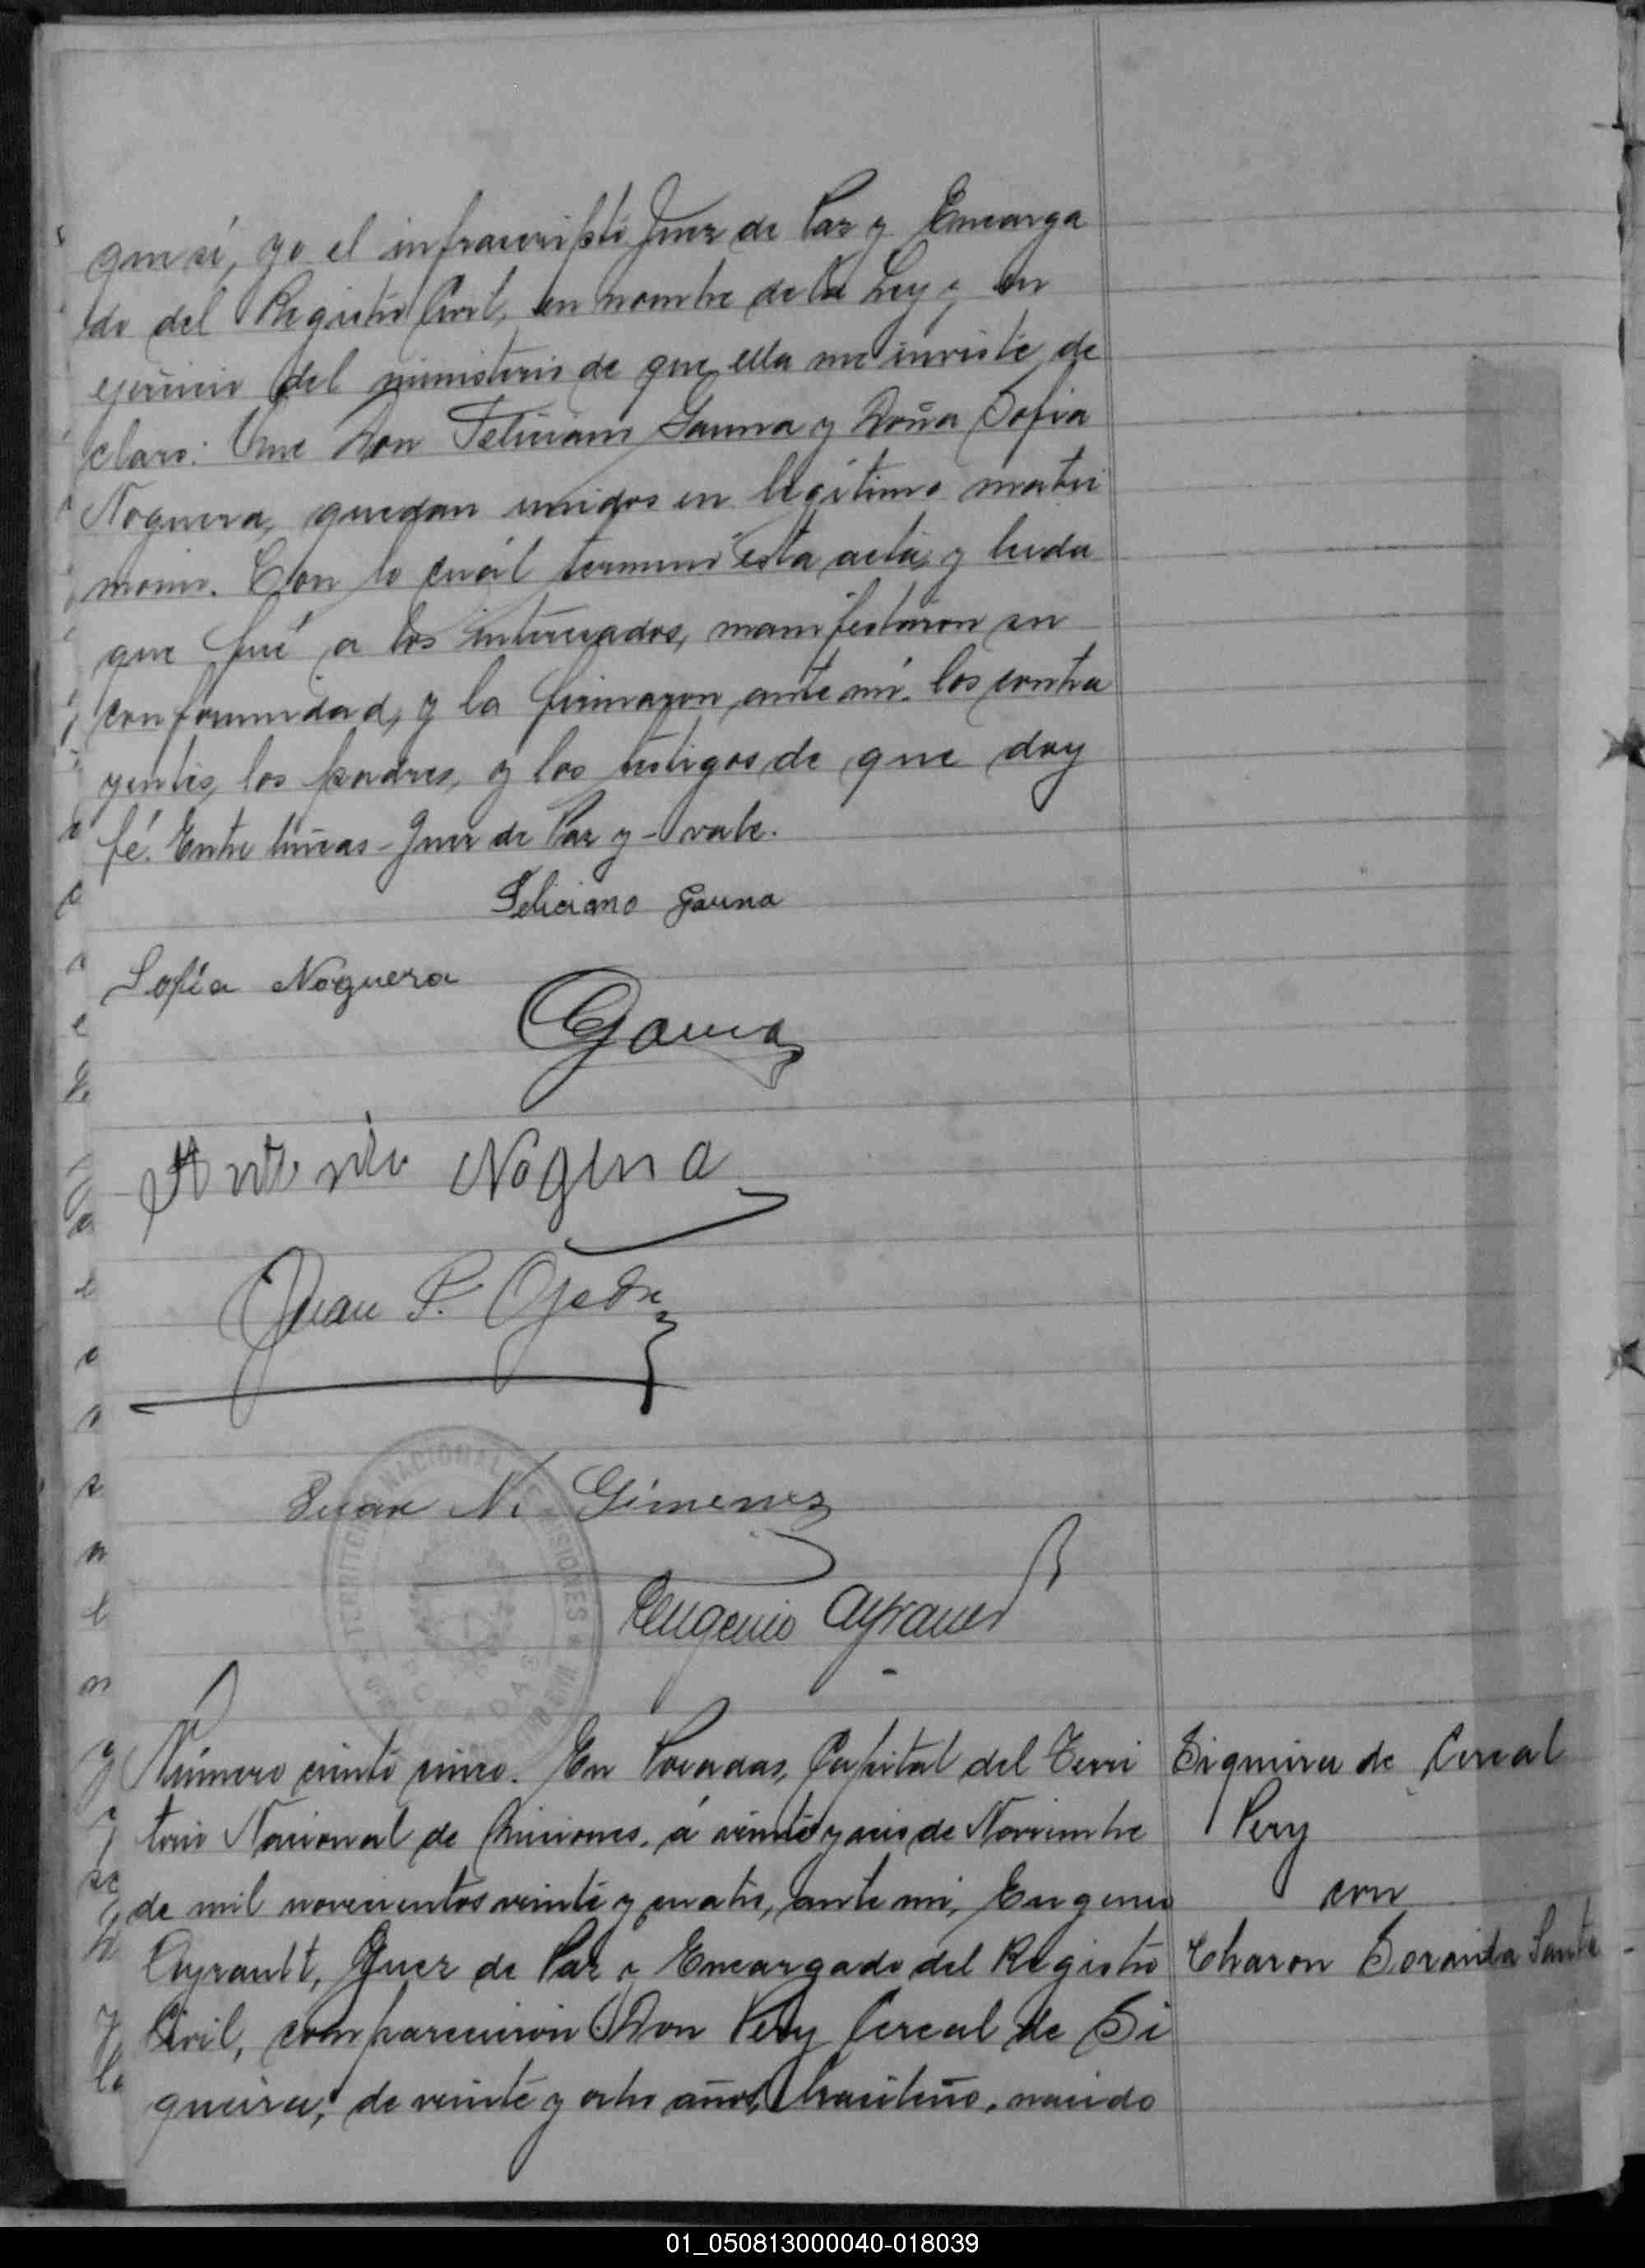 que sí, yo el infrascripto Juez de Paz y Encarga
do del Registro Civil, en nombre de la Ley y en
ejercicio del ministerio de que ella me inviste de
claro: Que Don Feliciano Gauna y Doña Sofia
Noguera, quedan unidos en legítimo matri
monio. Con lo cuál terminó esta acta, y leida
que fué a los interesados, manifestaron su
conformidad, y la firmaron ante mí, los contra
yentes, los padres, y los testigos de que doy
fé. Entre lineas - Juez de Paz y - vale.
Feliciano Gauna
Sofía Noguera
Gauna
Antonio Nogera
Juan P. Ojeda
Juan N. Gimenez
Eugenio Ayrault
TERRITORIO NACIONAL DE MISIONES
POSADAS
Número ciento cinco. En Posadas, Capital del Terri
torio Nacional de Misiones, á veinte y seis de Noviembre
de mil novecientos veinte y cuatro, ante mi, Eugenio
Ayrault, Juez de Paz y Encargado del Registro
Civil, comparecieron: Don Pery Cereal de Si
queira, de veinte y ocho años, brasileño, nacido
Siqueira de Cereal
Pery
con
Charon Soraida